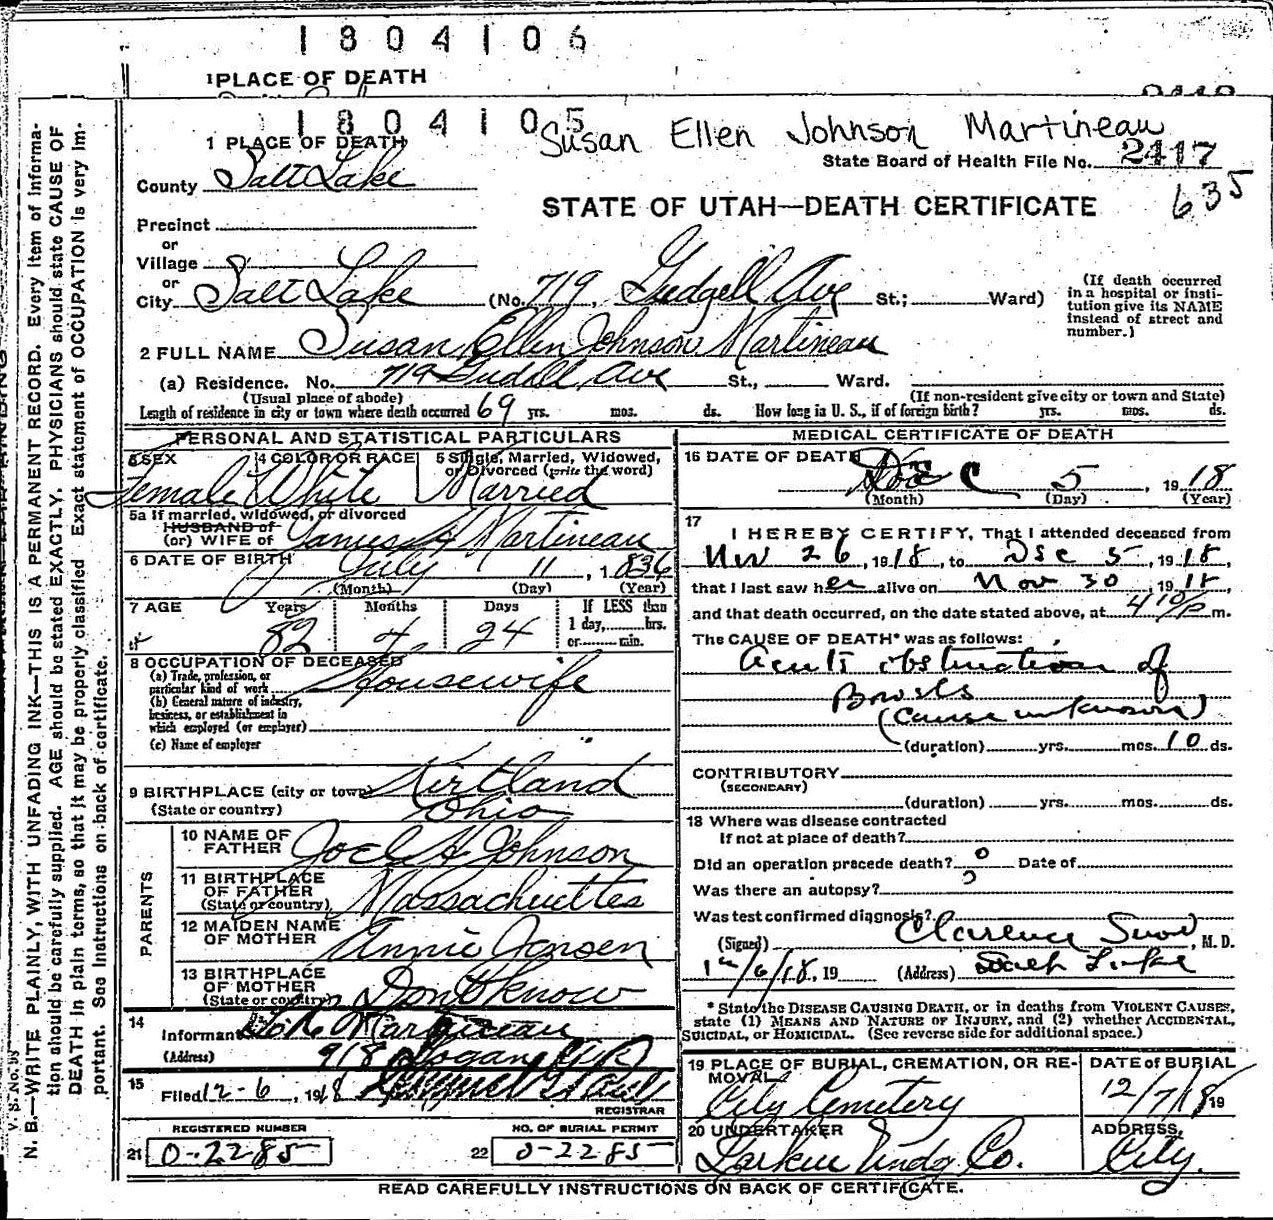 1804106
1 PLACE OF DEATH
1804105
Susan Ellen Johnson Martineau
1 PLACE OF DEATH
State Board of Health File No. 2417
635
County Salt Lake
STATE OF UTAH—DEATH CERTIFICATE
Precinct
or
Village
or
City Salt Lake (No. 719, Gudgell Ave St.; Ward)
(If death occurred in a hospital or institution give its NAME instead of street and number.)
2 FULL NAME Susan Ellen Johnson Martineau
(a) Residence. No. 719 Gudgell Ave St., Ward.
(Usual place of abode) (If non-resident give city or town and State)
Length of residence in city or town where death occurred 69 yrs. mos. ds. How long in U. S., if of foreign birth? yrs. mos. ds.
PERSONAL AND STATISTICAL PARTICULARS
3 SEX 4 COLOR OR RACE 5 Single, Married, Widowed, or Divorced (write the word)
Female White Married
5a If married, widowed, or divorced
HUSBAND of
(or) WIFE of James H Martineau
6 DATE OF BIRTH July 11, 1836
(Month) (Day) (Year)
7 AGE Years Months Days If LESS than
1 day, hrs.
or min.
82 4 24
8 OCCUPATION OF DECEASED
(a) Trade, profession, or
particular kind of work Housewife
(b) General nature of industry,
business, or establishment in
which employed (or employer)
(c) Name of employer
9 BIRTHPLACE (city or town) Kirtland
(State or country) Ohio
PARENTS
10 NAME OF
FATHER Joel H Johnson
11 BIRTHPLACE
OF FATHER
(State or country) Massachuettes
12 MAIDEN NAME
OF MOTHER Annie Jonsen
13 BIRTHPLACE
OF MOTHER
(State or country) Dont know
14
Informant Martineau
(Address) 918 Logan
15
Filed 12-6, 1918
REGISTRAR
REGISTERED NUMBER NO. OF BURIAL PERMIT
21 0-2285 22 0-2285
MEDICAL CERTIFICATE OF DEATH
16 DATE OF DEATH Dec 5, 1918
(Month) (Day) (Year)
17
I HEREBY CERTIFY, That I attended deceased from
Nov 26, 1918, to Dec 5, 1918,
that I last saw her alive on Nov 30, 1918,
and that death occurred, on the date stated above, at 4 10/p m.
The CAUSE OF DEATH* was as follows:
acute obstruction of
Bowels
(cause unknown)
(duration) yrs. mos. 10 ds.
CONTRIBUTORY
(SECONDARY)
(duration) yrs. mos. ds.
18 Where was disease contracted
If not at place of death?
Did an operation precede death? o Date of
Was there an autopsy?
Was test confirmed diagnosis?
(Signed) Clarence Snow, M. D.
12/6/18, 19 (Address) Salt Lake
* State the DISEASE CAUSING DEATH, or in deaths from VIOLENT CAUSES,
state (1) MEANS AND NATURE OF INJURY, and (2) whether ACCIDENTAL,
SUICIDAL, or HOMICIDAL. (See reverse side for additional space.)
19 PLACE OF BURIAL, CREMATION, OR RE-
MOVAL
City Cemetery
DATE OF BURIAL
12/7/18 19
20 UNDERTAKER
Larkin Undg Co.
ADDRESS,
City.
READ CAREFULLY INSTRUCTIONS ON BACK OF CERTIFICATE.
V. S. No. 98
N. B.—WRITE PLAINLY, WITH UNFADING INK—THIS IS A PERMANENT RECORD. Every item of informa-
tion should be carefully supplied. AGE should be stated EXACTLY. PHYSICIANS should state CAUSE OF
DEATH in plain terms, so that it may be properly classified. Exact statement of OCCUPATION is very im-
portant. See instructions on back of certificate.